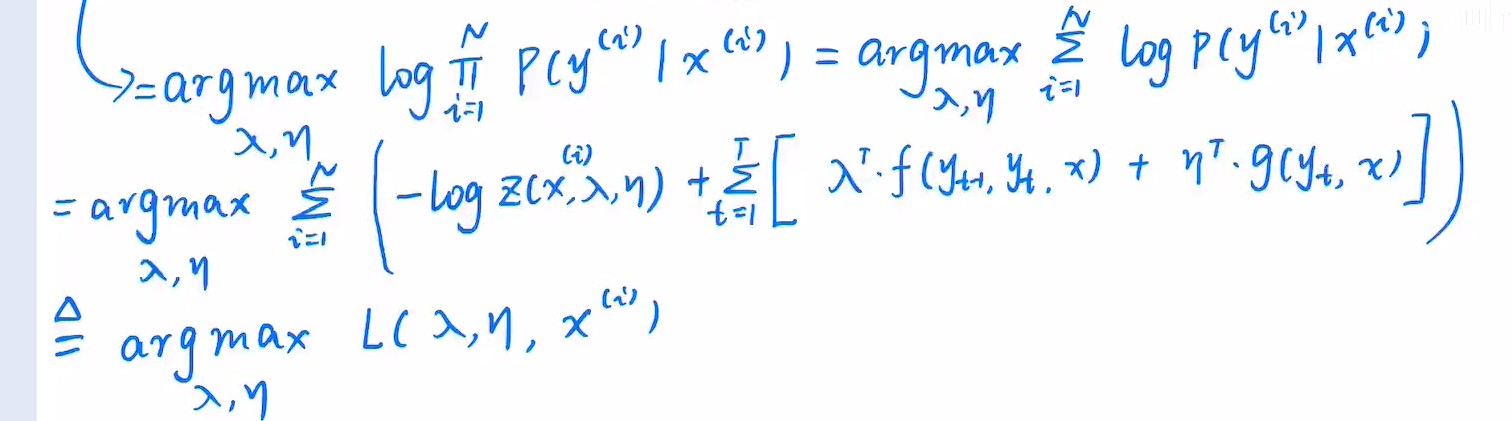 = argmax_{λ,η} log ∏_{i=1}^{N} P(y^{(i)} | x^{(i)}) = argmax_{λ,η} ∑_{i=1}^{N} log P(y^{(i)} | x^{(i)})
= argmax_{λ,η} ∑_{i=1}^{N} ( -log Z(x^{(i)}, λ, η) + ∑_{t=1}^{T} [ λ^T · f(y_{t-1}, y_t, x) + η^T · g(y_t, x) ] )
≜ argmax_{λ,η} L(λ, η, x^{(i)})